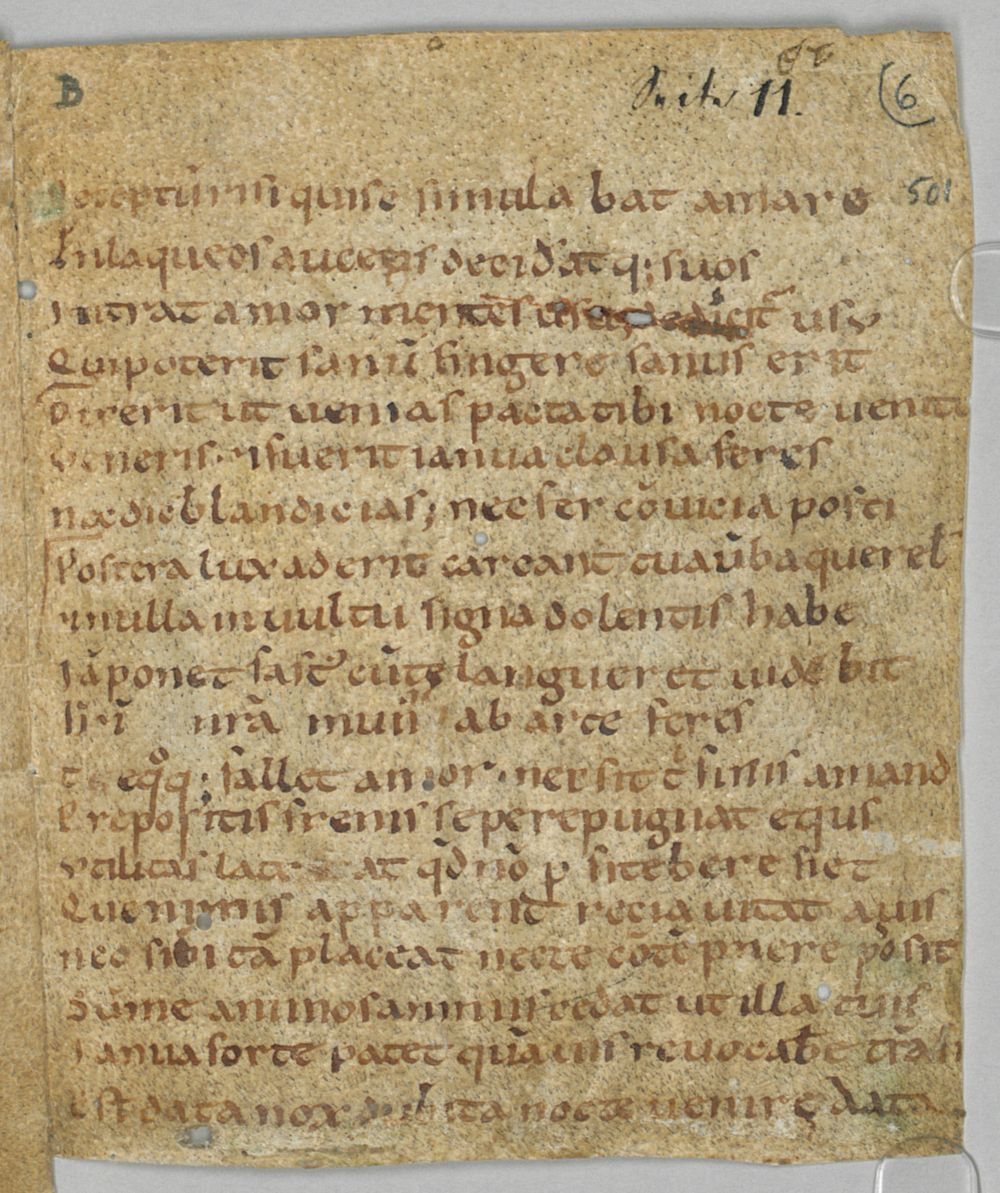 B
Seite 11.
(6
501
Deceptū risi qui se simula bat amare
Inlaqueos auceps decid̄at q; suos
Intrat amor mentēs usv
Qui poterit sanū fingere sanus erit
Dixerit ut uenias pacta tibi nocte uenito
Veneris fuerit ianua clausa feres
nec dic blandicias; nec fer cōuicia posti
Postera lux aderit careant tua ūba querel̄
nulla in uultu signa dolentis habe
Iā ponet fast᷒ cū te langueret uide bit
nr̄a mun᷒ ab arte feres
eq̊q; fallet amor nec sit t̊ finis amand
Prepositis frenis sepe repugnat equs
Vtilitas lat at qd̄ nō ꝓ fitebere fiet
Que nimis apparent recia uitat auis
nec sibi tā placeat nec te cōtēpnere possit
Sume animos animis cedat ut illa tuis
Ianua forte patet quāuis reuocab̄e trāsi
Est data nox dubita nocte uenire data